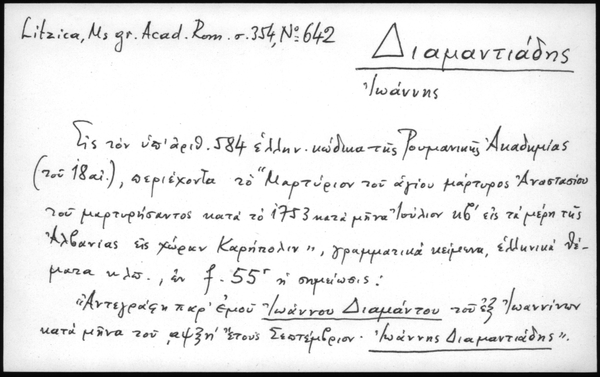 Litzica, Ms gr. Acad. Rom. σ. 354, Nº 642
Διαμαντιάδης
Ἰωάννης
Εἰς τὸν ὑπ' ἀριθ. 584 ἑλλην. κώδικα τῆς Ῥουμανικῆς Ἀκαδημίας
(τοῦ 18 αἰ.), περιέχοντα τὸ "Μαρτύριον τοῦ ἁγίου μάρτυρος Ἀναστασίου
τοῦ μαρτυρήσαντος κατὰ τὸ 1753 κατὰ μῆνα Ἰούλιον κβ' εἰς τὰ μέρη τῆς
Ἀλβανίας εἰς χώραν Καρήπολιν", γραμματικὰ κείμενα, ἑλληνικὰ θέ-
ματα κλπ., ἐν f. 55r ἡ σημείωσις:
"Ἀντεγράφη παρ' ἐμοῦ Ἰωάννου Διαμάντου τοῦ ἐξ Ἰωαννίνων
κατὰ μῆνα τοῦ ,αψξη' ἔτους Σεπτέμβριον. Ἰωάννης Διαμαντιάδης".